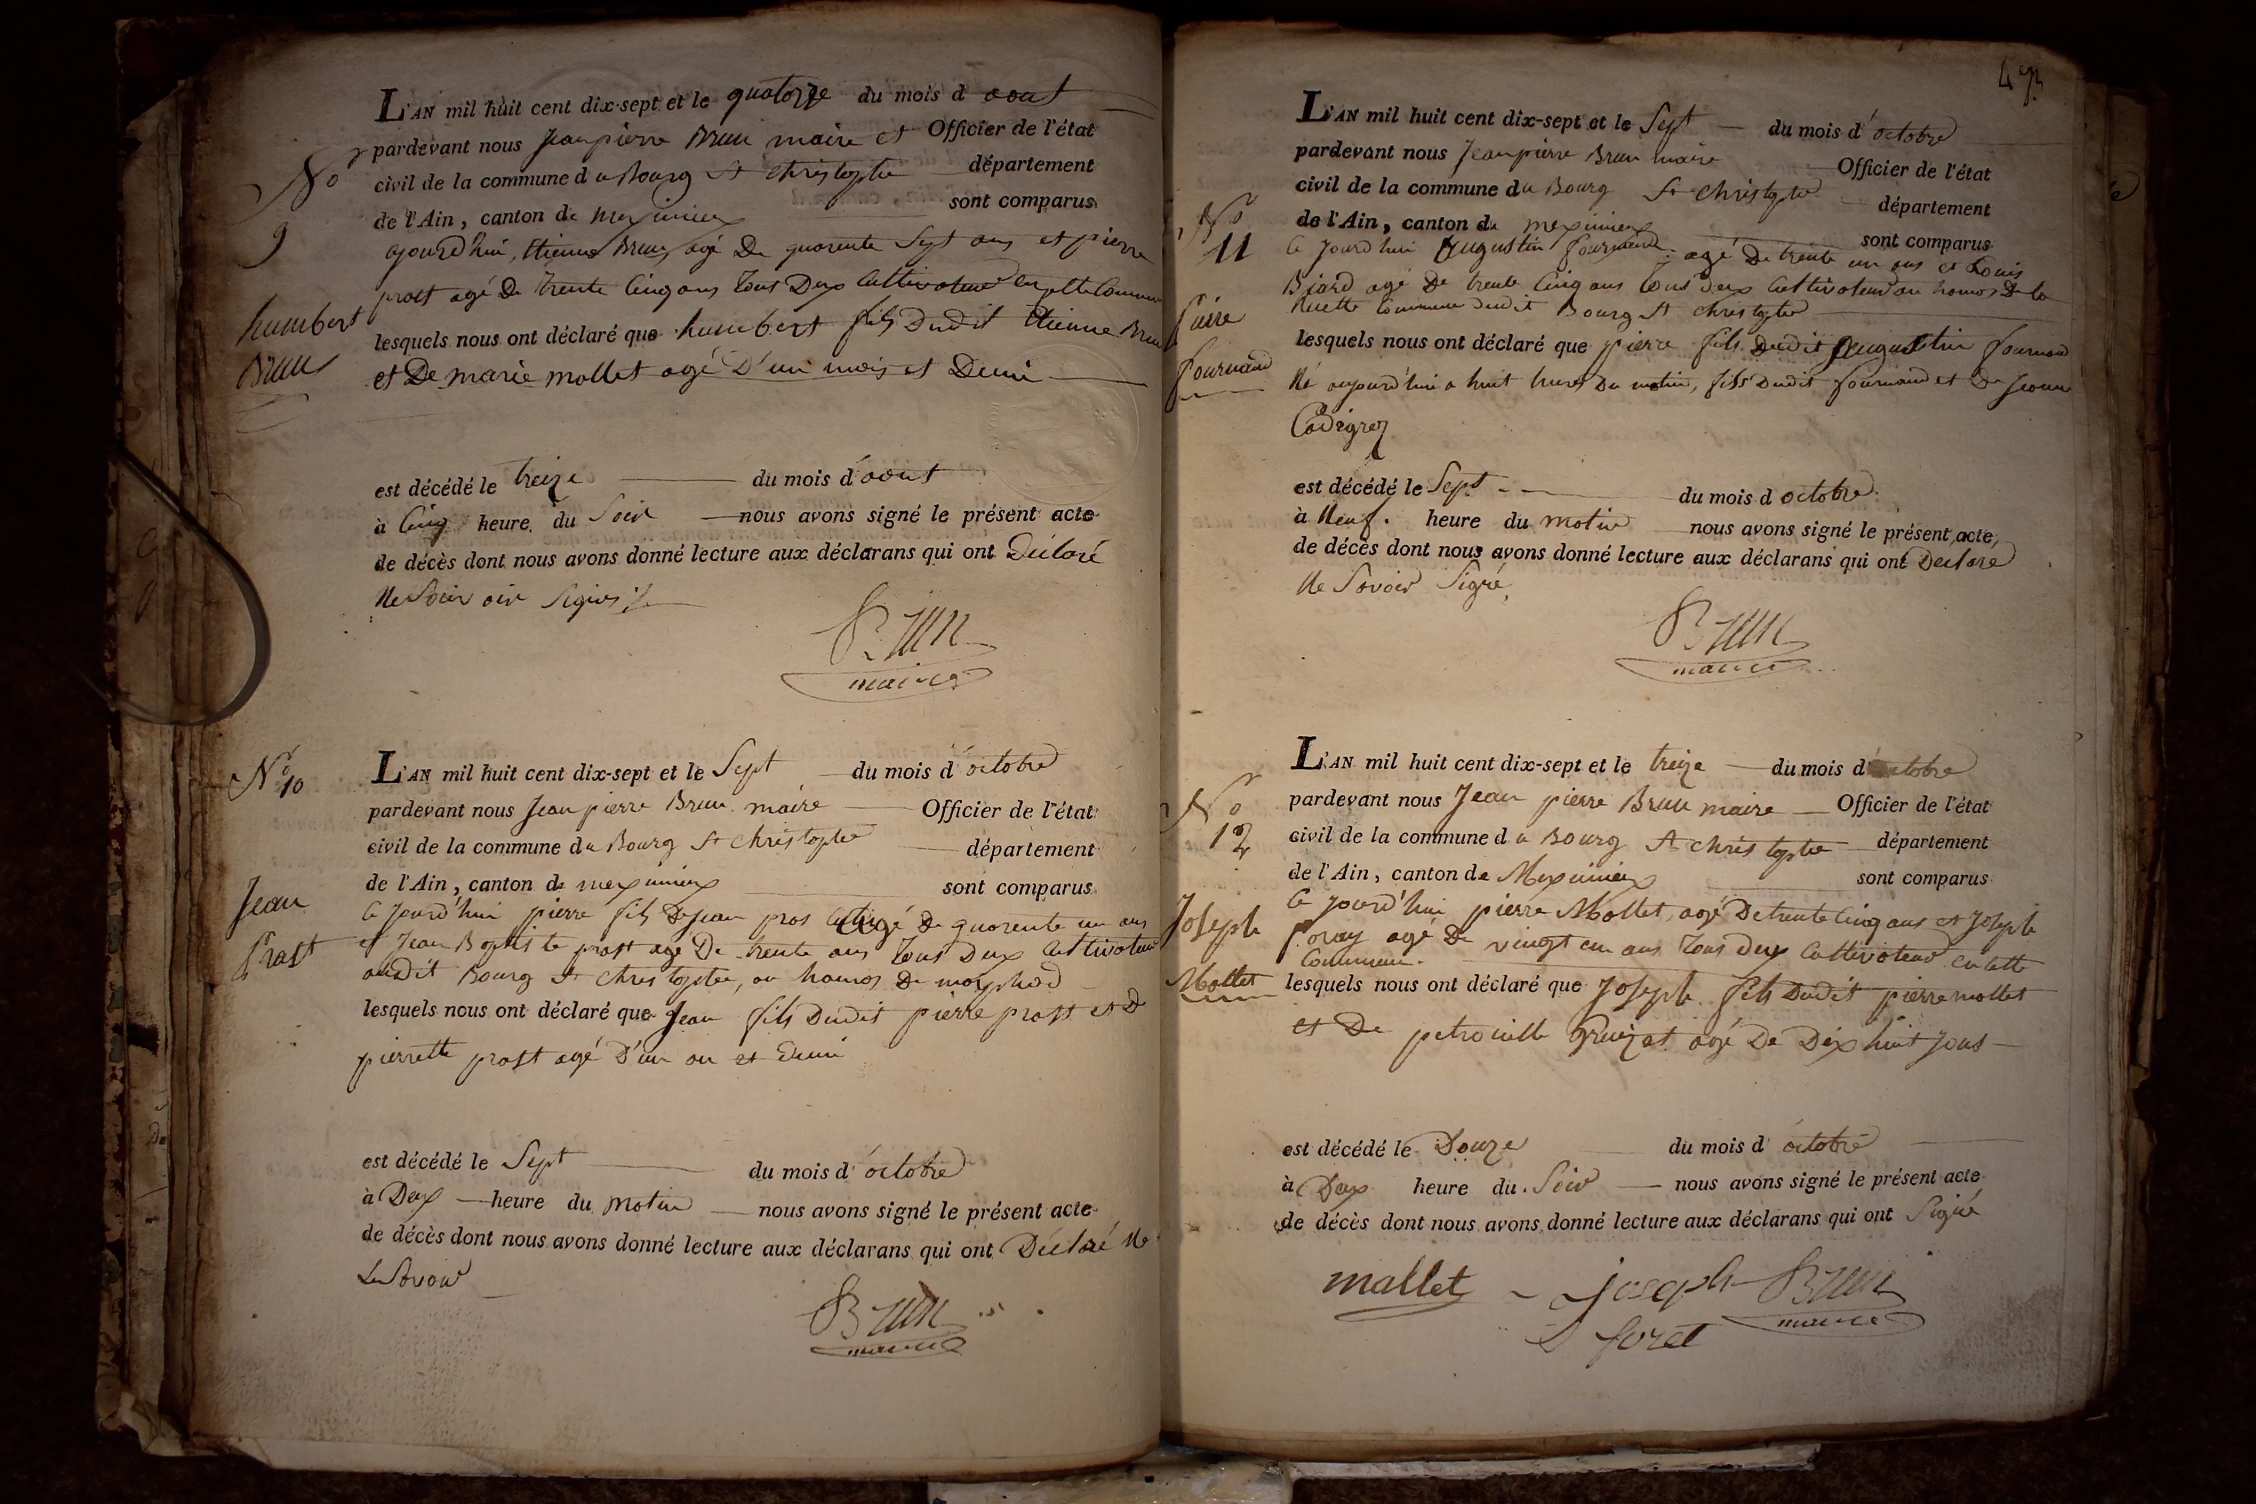 No
9
humbert
Brun
L'AN mil huit cent dix-sept et le quatorze du mois d aout
pardevant nous Jean pierre Brun maire et Officier de l'état
civil de la commune du Bourg St christophe département
de l'Ain, canton de meximieux sont comparus
ajourd'hui, Etienne Brun, agé De quarente Sept ans et pierre
prost agé De trente Cinq ans tous Deux Cultivateur en cette Commune
lesquels nous ont déclaré que humbert fils Dudit Etienne Brun
et De marie mollet agé D'un mois et Demi
est décédé le treize du mois d'aout
à Cinq heure du Soir nous avons signé le présent acte
de décès dont nous avons donné lecture aux déclarans qui ont Déclaré
Ne
Brun
maire
No 10
Jean
Prost
L'AN mil huit cent dix-sept et le Sept du mois d'octobre
pardevant nous Jean pierre Brun maire Officier de l'état
civil de la commune du Bourg St christophe département
de l'Ain, canton de meximieux sont comparus
Ce Jourd'hui pierre fils De Jean pros agé De quarente un ans
et Jean Baptiste prost agé De trente ans tous Deux Cultivateur
audit Bourg St christophe, au hamos De
lesquels nous ont déclaré que Jean fils Dudit pierre prost et D
pierrette prost agé D'un an et demi
est décédé le Sept du mois d'octobre
à Deux heure du matin nous avons signé le présent acte
de décès dont nous avons donné lecture aux déclarans qui ont Déclaré Ne
Le Savoir
Brun
maire
No
11
Pierre
fournand
L'AN mil huit cent dix-sept et le Sept du mois d'octobre
pardevant nous Jean pierre Brun maire Officier de l'état
civil de la commune du Bourg St christophe département
de l'Ain, canton de meximieux sont comparus
Ce Jourd'hui Augustin fournand agé De trente un ans et Louis
Biard agé De trente Cinq ans tous deux Cultivateur au hamos De la
Ruette Commune dudit Bourg St christophe
lesquels nous ont déclaré que pierre fils dudit Augustin fournand
Né aujourd'hui a huit heures Du matin, fils Dudit fournand et De Jeanne
Cadegrez
est décédé le Sept du mois d octobre
à Neuf heure du matin nous avons signé le présent acte
de décès dont nous avons donné lecture aux déclarans qui ont Declaré
Ne Savoir Signé
Brun
maire
No
12
Joseph
Mollet
L'AN mil huit cent dix-sept et le treize du mois d'octobre
pardevant nous Jean pierre Brun maire Officier de l'état
civil de la commune du Bourg St christophe département
de l'Ain, canton de Meximieux sont comparus
Ce Jourd'hui pierre Mollet, agé De trente Cinq ans et Joseph
foray agé De vingt un ans tous Deux Cultivateur en cette
Commune.
lesquels nous ont déclaré que Joseph fils Dudit pierre mollet
et De petronille agé De Dix huit Jours
est décédé le Douze du mois d' octobre
à Deux heure du Soir nous avons signé le présent acte
de décès dont nous avons donné lecture aux déclarans qui ont Signé
mallet Joseph Brun
foret maire